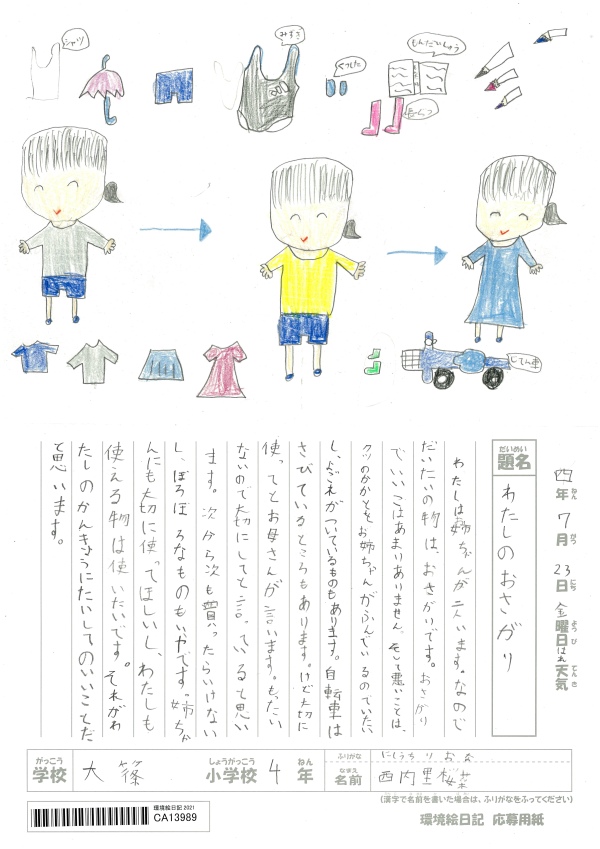 シャツ
みずぎ
くつした
もんだいしゅう
長ぐつ
じてん車
四年7月23日金曜日はれ天気
ねん がつ にち ようび てんき
だいめい
題名
わたしのおさがり
わたしは姉ちゃんが二人います。なので
だいたいの物は、おさがりです。おさがり
でいいことはあまりありません。そして悪いことは、
クツのかかとをお姉ちゃんがふんでいるのでいたい
し、よごれがついているものもあります。自転車は
さびているところもあります。けど大切に
使ってとお母さんが言います。もったい
ないので大切にしてと言っていると思い
ます。次から次も買ったらいけない
し、ぼろぼろなものもいやです。姉ちゃ
んにも大切に使ってほしいし、わたしも
使える物は使いたいです。それがわ
たしのかんきょうにたいしてのいいことだ
と思います。
がっこう
学校
大篠
しょうがっこう
小学校
4
ねん
年
ふりがな
にしうちりおな
なまえ
名前
西内里桜菜
(漢字で名前を書いた場合は、ふりがなをふってください)
環境絵日記 2021
CA13989
環境絵日記 応募用紙